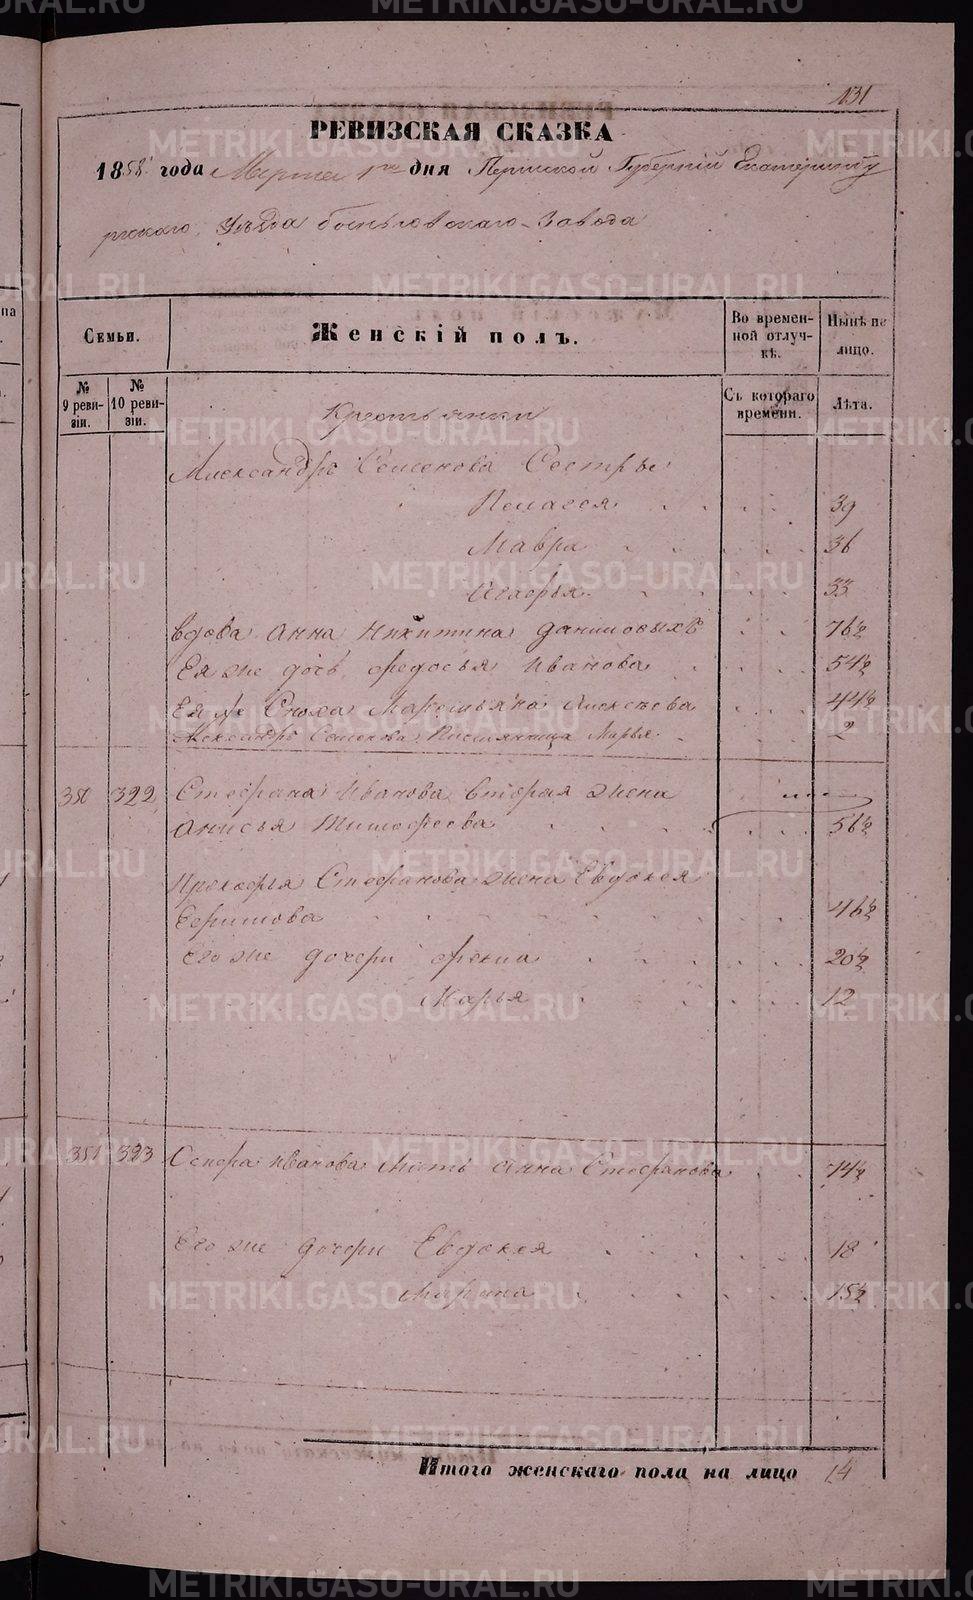 131
РЕВИЗСКАЯ СКАЗКА
1858 года Марта 1го дня Пермской Губерніи Екатеринбу
ргскаго Уѣзда Завода
Семьи.
Женскій полъ.
Во временной отлучкѣ.
Нынѣ на лицо.
№ 9 ревизіи.
№ 10 ревизіи.
Съ котораго времени.
Лѣта.
Крестьянки
Александра Семенова Сестры
Пелагея 39
Мавра 36
Агафья 33
Вдова Анна Никитина Даниловыхъ 76½
Ея же дочь Федосья Иванова 54½
Ея же Сноха Маремьяна Алексѣева 44½
Александра Семенова Марья 2
350 322 Стефана Иванова вторая жена
Анисья Тимофеева 56½
Прокофья Стефанова жена Евдокея
46½
Его же дочери Фекла 20½
Марья 12
351 323 Иванова Мать Анна Стефанова 74½
Его же дочери Евдокея 18
Марина 15½
Итого женскаго пола на лицо 14
METRIKI.GASO-URAL.RU